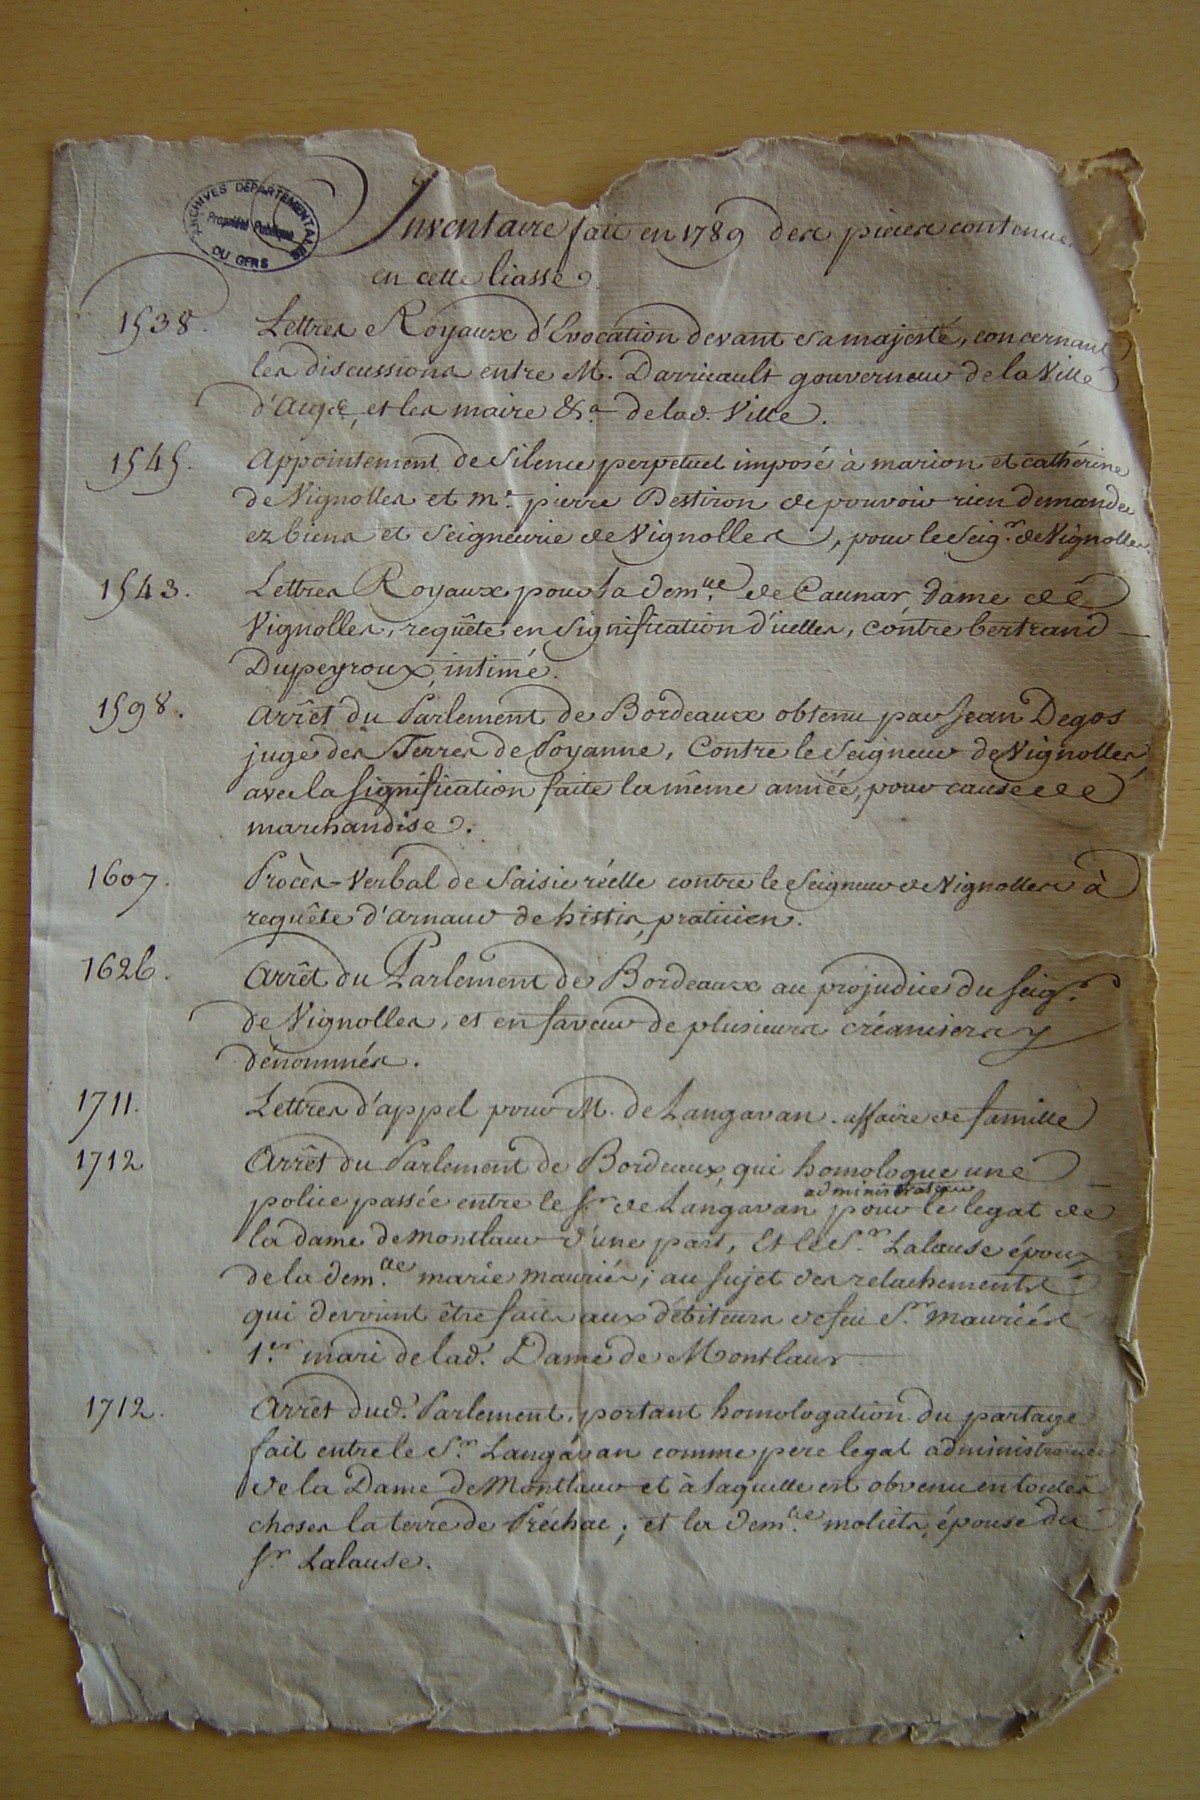 ARCHIVES DÉPARTEMENTALES
Propriété Publique
DU GERS
Inventaire fait en 1789 des pieces contenues
en cette liasse.
1538. Lettres Royaux d'Evocation devant sa majesté, concernant
les discussions entre M. Darricault gouverneur de la Ville
d'Acqs, et les maire &a. de lad. Ville.
1545. Appointement de Silence perpetuel imposé à marion et cathérine
de Vignolles et Me. pierre Destiron de pouvoir rien demander
ez biens et Seigneurie de Vignolles, pour le Seigr. de Vignolles.
1543. Lettres Royaux pour la demlle. de Caunar dame de
Vignolles, requête en signification d'icelles, contre bertrand
Dupeyroux, intimé.
1598. Arrêt du Parlement de Bordeaux obtenu par Jean Degos
juge des Terres de Poyanne, Contre le Seigneur de Vignolles,
avec la signification faite la même année, pour cause de
marchandise.
1607. Procès-Verbal de Saisie réelle contre le Seigneur de Vignolles à
requête d'arnaud de histis, praticien.
1626. Arrêt du Parlement de Bordeaux au préjudice du Seigr.
de Vignolles, et en faveur de plusieurs créanciers y
dénommés.
1711. Lettres d'appel pour M. de Langavan. affaire de famille
1712 Arrêt du Parlement de Bordeaux, qui homologue une
police passée entre le Sr. de Langavan administrateur pour le legat de
la dame de montlaur d'une part, Et le Sr. Lalause époux
de la demlle. marie mauriés; au sujet des relachements
qui devront être faits aux débiteurs de feu Sr. mauriés
1er. mari de lad. Dame de Montlaur
1712. Arrêt dud. Parlement, portant homologation du partage
fait entre le Sr. Langavan comme pere legal administrateur
de la Dame de Montlaur et à laquelle est obvenu en toutes
choses la terre de Préchac; et la demlle. moliets, épouse du
Sr. Lalause.